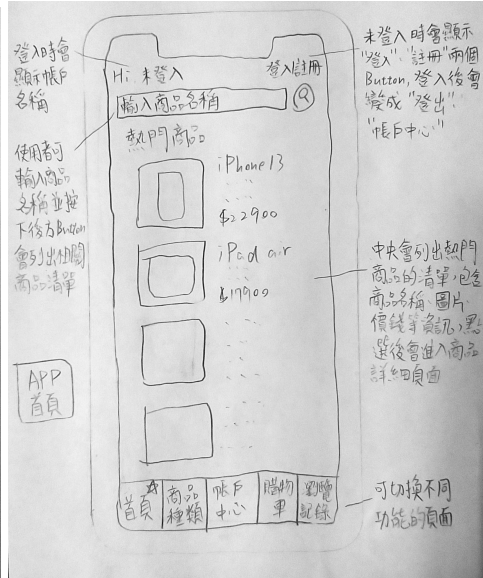 登入時會
顯示帳戶
名稱
使用者可
輸入商品
名稱並按
下後方Button
會列出相關
商品清單
APP
首頁
Hi, 未登入
登入 註冊
輸入商品名稱
熱門商品
iPhone13
$22900
iPad air
$17900
首頁
商品
種類
帳戶
中心
購物
車
瀏覽
記錄
未登入時會顯示
"登入"、"註冊"兩個
Button,登入後會
變成"登出"、
"帳戶中心"
中央會列出熱門
商品的清單,包含
商品名稱、圖片、
價錢等資訊,點
選後會進入商品
詳細頁面
可切換不同
功能的頁面